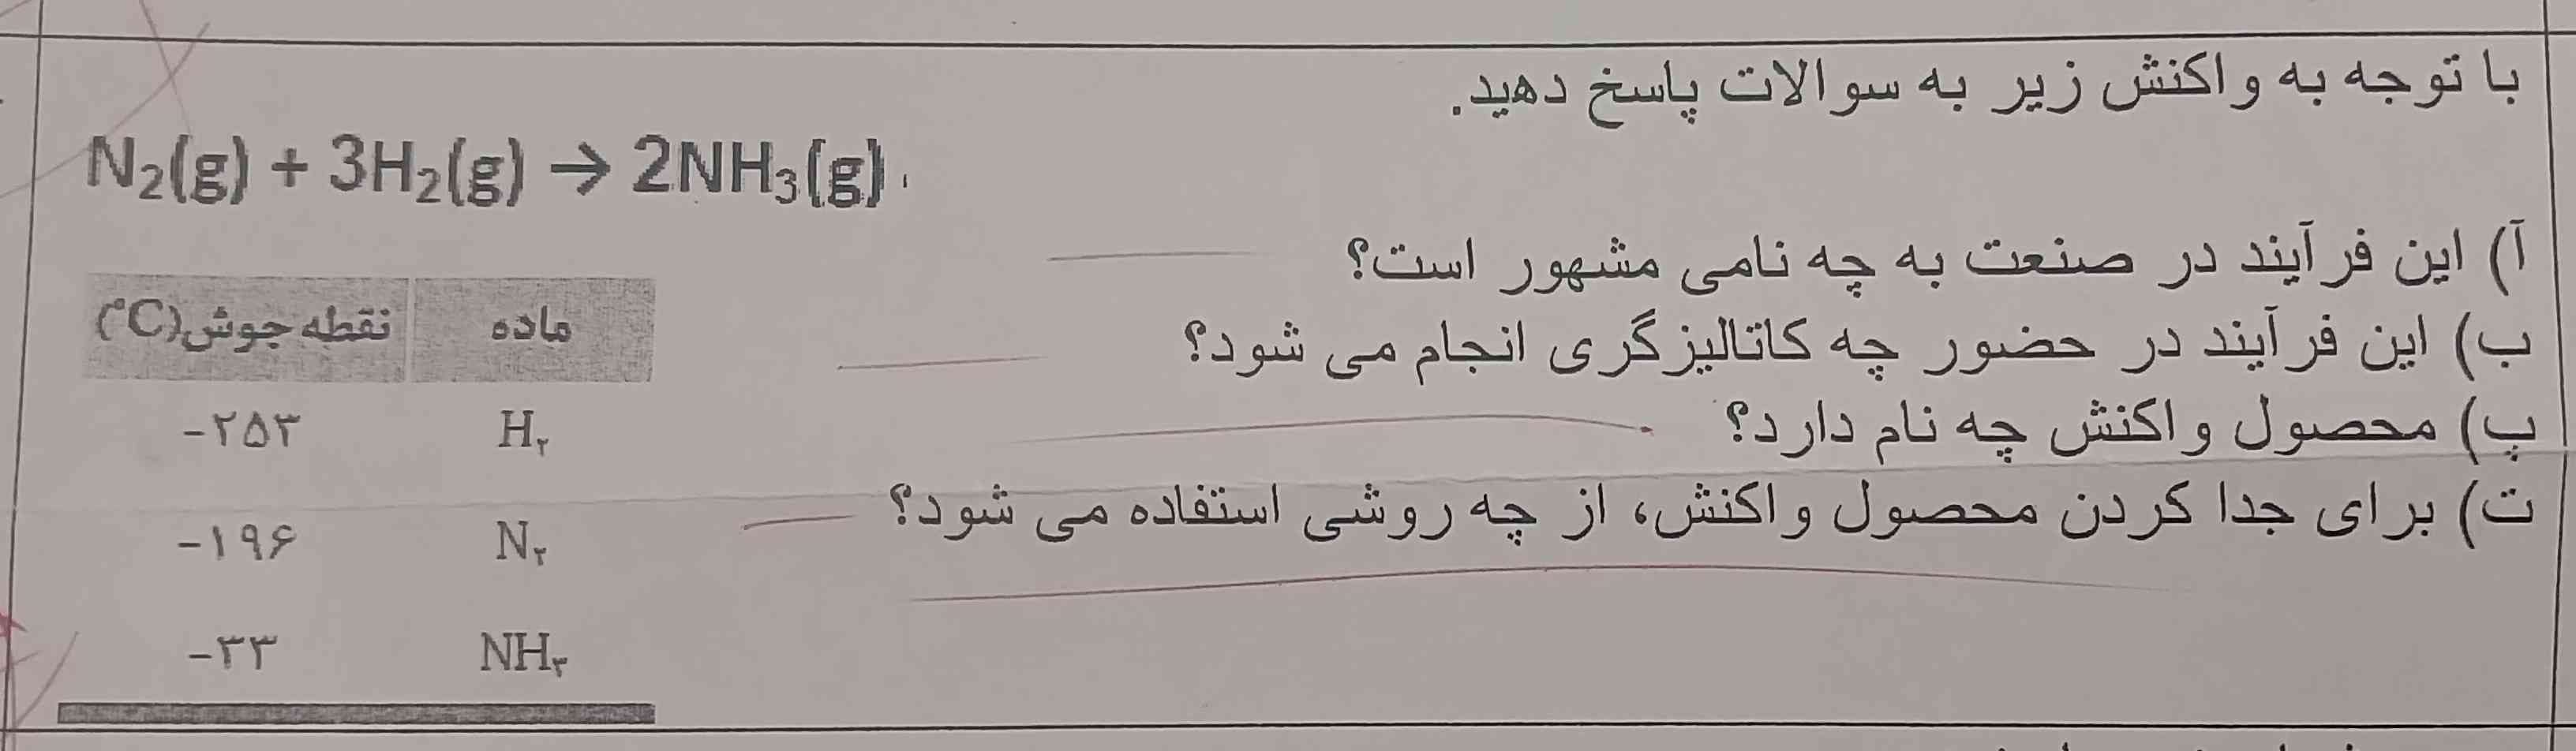 با توجه به واکنش زیر به سوالات پاسخ دهید.
N₂(g) + 3H₂(g) → 2NH₃(g)
آ) این فرآیند در صنعت به چه نامی مشهور است؟
ب) این فرآیند در حضور چه کاتالیزگری انجام می شود؟
پ) محصول واکنش چه نام دارد؟
ت) برای جدا کردن محصول واکنش، از چه روشی استفاده می شود؟
ماده نقطه جوش(°C)
H۲ -۲۵۳
N۲ -۱۹۶
NH۳ -۳۳